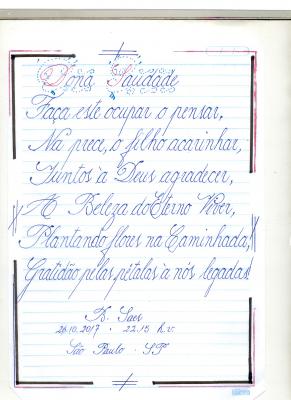 Dona Saudade
Faça este ocupar o pensar,
Na prece, o filho acarinhar,
Juntos à Deus agradecer,
A Beleza do Eterno Viver,
Plantando flores na Caminhada,
Gratidão pelas pétalas à nós legadas!
B. Saes
26.10.2017 . 22.15 h.v.
São Paulo . SP